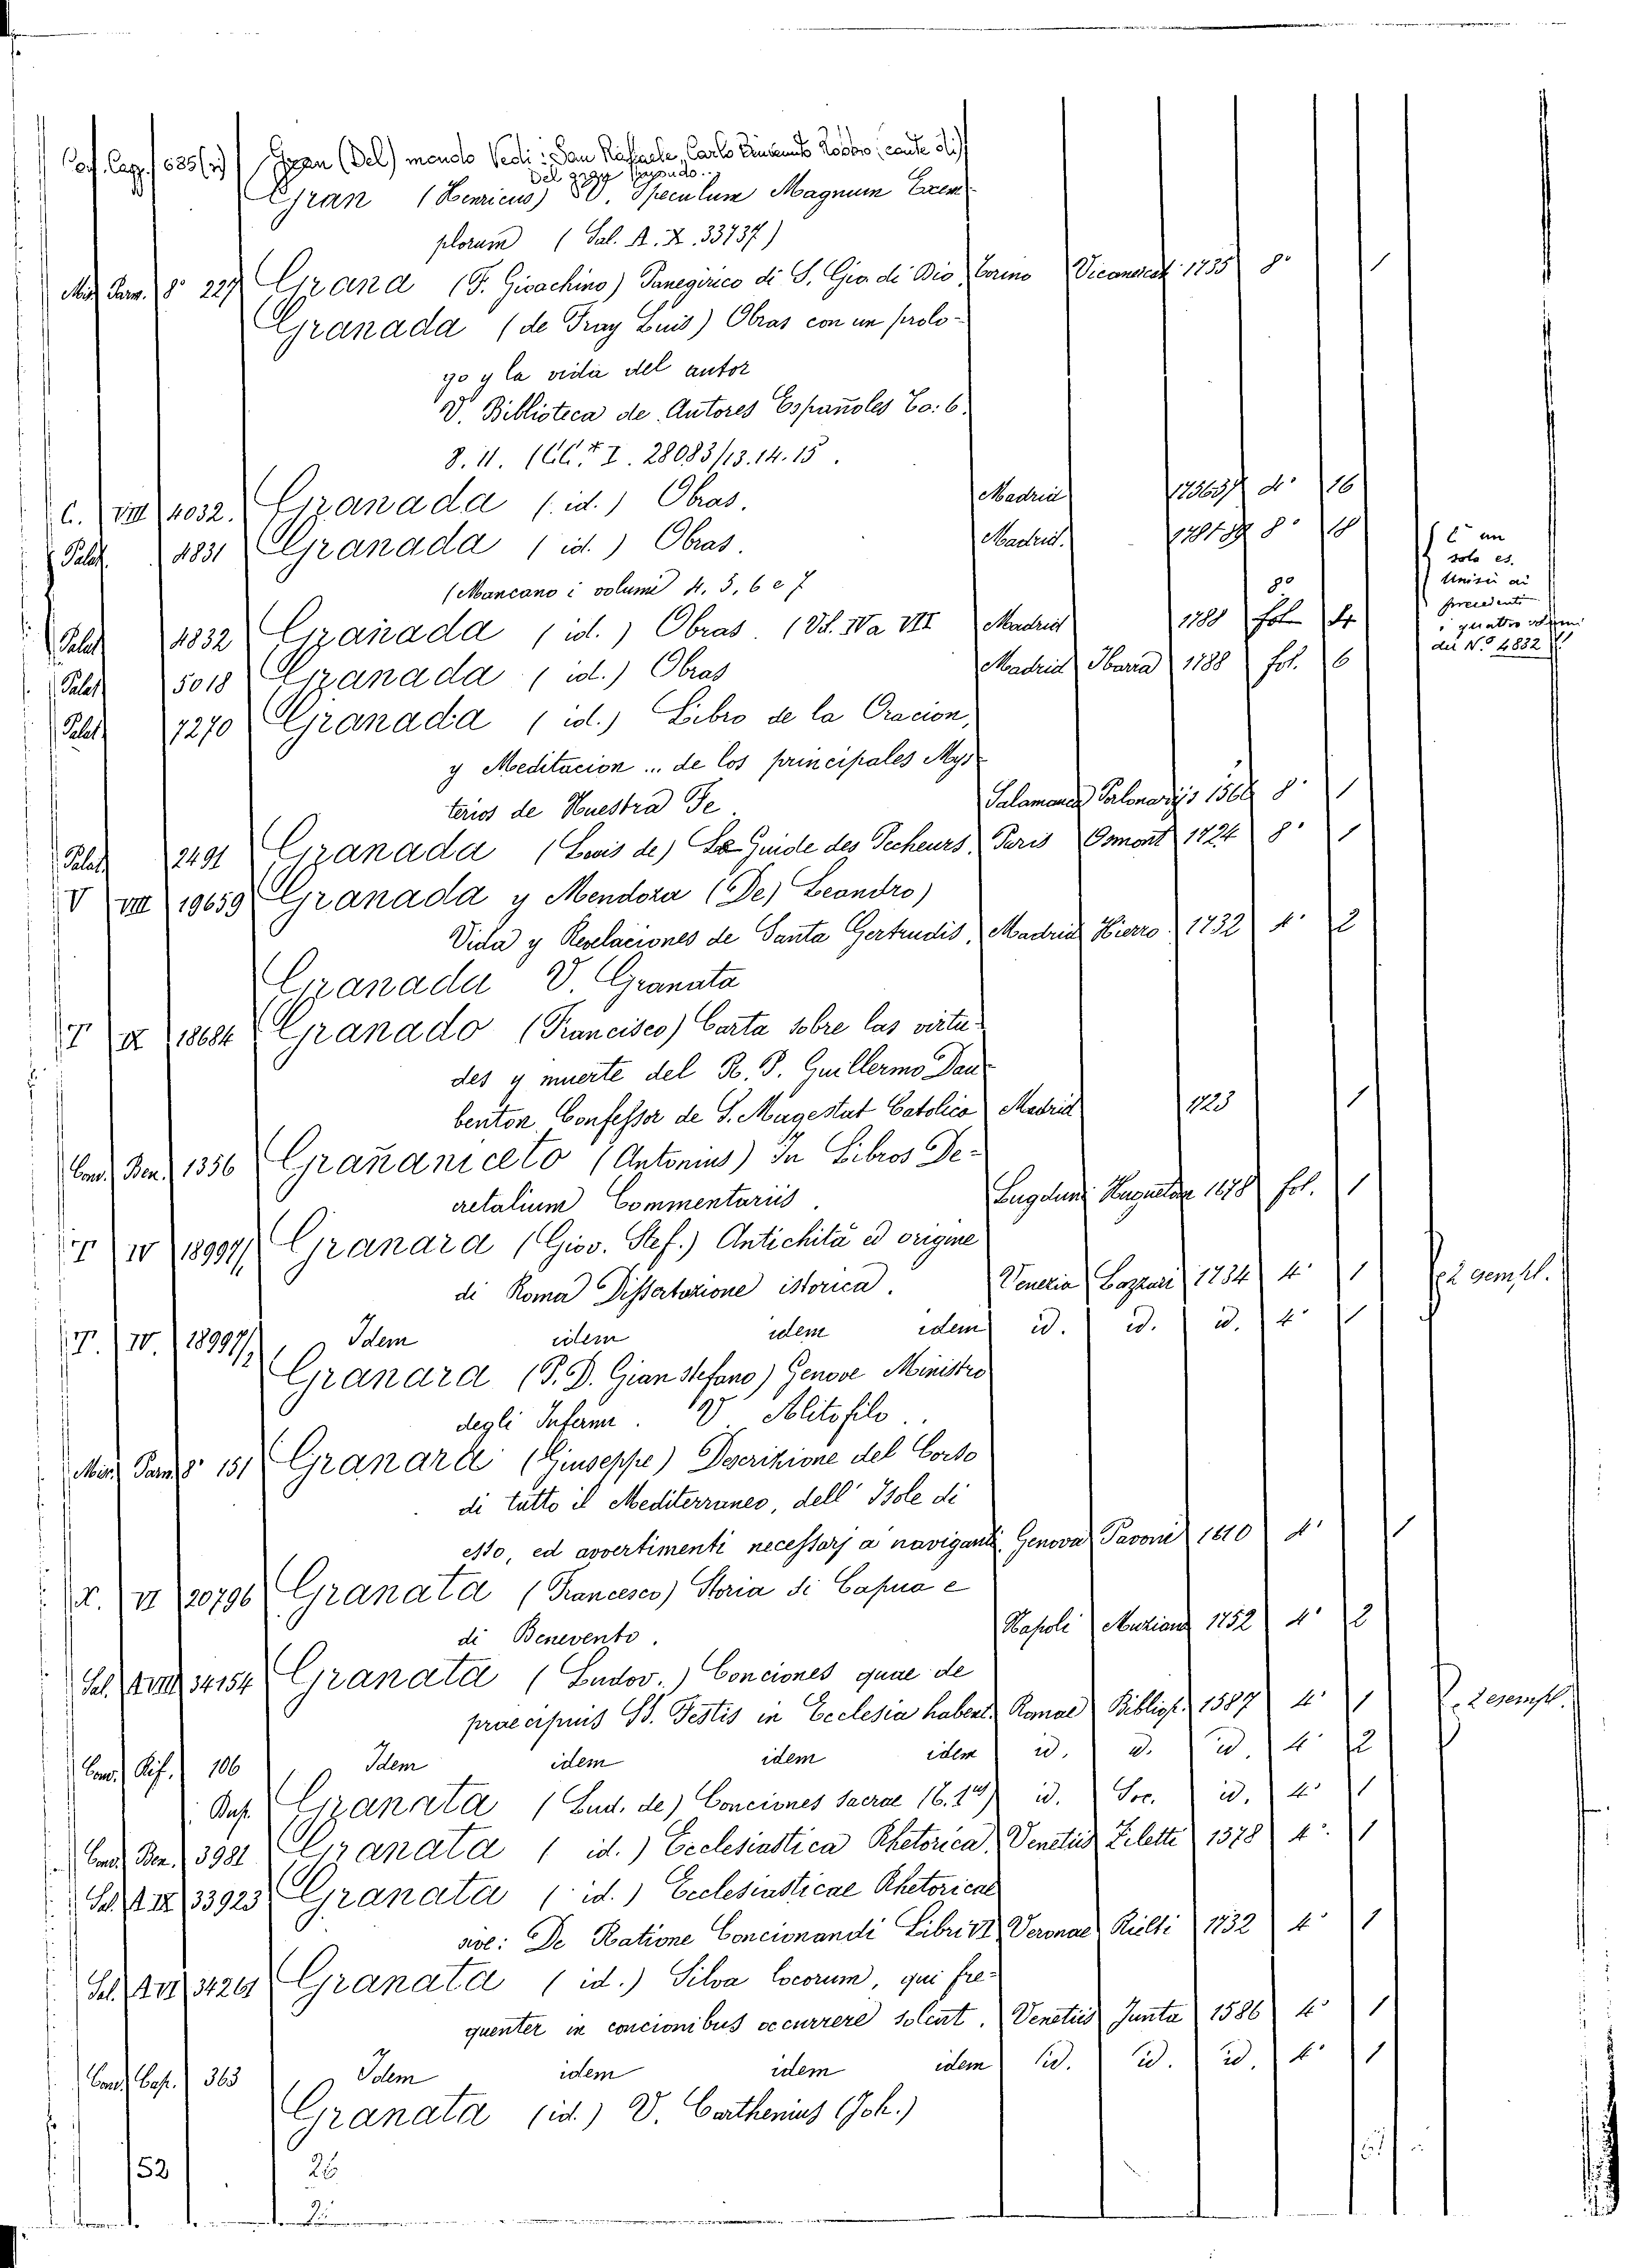 Gran (Del) mondo Vedi: San Raffaele, Carlo Vincenzo Rosso, conte di
Gran (Henricus) V. Speculum Magnum Exem-
plorum (Sal. A. X. 33737)
Mis. Parm. 8° 227 Grana (F. Gioachino) Panegirico di S. Gio. di Dio, Torino 1735 8° 1
Granada (de Fray Luis) Obras con un prolo-
go y la vida del autor
V. Biblioteca de Autores Españoles To: 6.
8. 11. I. 28083/13.14.15.
C. VIII 4032. Granada (id.) Obras. Madrid 4° 16
Palat. 4831 Granada (id.) Obras. Madrid. 8°
È un
solo es.
Unisci ai
precedenti
i quattro volumi
del N.° 4832
(Mancano i volumi 4, 5, 6 e 7
8°
Palat. 4832 Granada (id.) Obras. (Vol. IV a VII Madrid 1788 fol. 4
Palat. 5018 Granada (id.) Obras Madrid Ibarra 1788 fol. 6
Palat. 7270 Granada (id.) Libro de la Oracion,
y Meditacion ... de los principales Mys-
terios de Nuestra Fe. Salamanca 8° 1
Palat. 2491 Granada (Louis de) La Guide des Pecheurs. Paris Osmont 1724 8° 1
V VIII 19659 Granada y Mendoza (De) Leandro)
Vida y Revelaciones de Santa Gertrudis, Madrid Hierro 1732 4° 2
Granada V. Granata
T X 18684 Granado (Francisco) Carta sobre las virtu-
des y muerte del R. P. Guillermo Dau-
benton Confessor de S. Magestat Catolica Madrid 1723 1
Cond. Ben. 1356 Grañaniceto (Antonius) In Libros De-
cretalium Commentariis. Lugduni Huguetan 1678 fol. 1
T IV 18997/1 Granara (Giov. Stef.) Antichità ed origine
di Roma Dissertazione istorica. Venezia 1734 4° 1 2 esempl.
T. IV. 18997/2 Idem idem idem idem id. id. id. 4° 1
Granara (P. D. Gian Stefano) Genove Ministro
degli Infermi. V. Alitofilo.
Mis. Parm. 8° 151 Granara (Giuseppe) Descrizione del Corso
di tutto il Mediterraneo, dell' Isole di
esso, ed avvertimenti necessarj a' naviganti. Genova Pavoni 1610 4° 1
X. VI 20796 Granata (Francesco) Storia di Capua e
di Benevento. Napoli Muziana 1752 4° 2
Sal. A VIII 34154 Granata (Ludov.) Conciones quae de
praecipuis SS. Festis in Ecclesia habent. Romae Bibliop. 1587 4° 1 2 esempl.
Cond. Rif. 106 Idem idem idem idem id. id. id. 4° 2
Dup. Granata (Lud. de) Conciones sacrae id. Soc. id. 4° 1
Cond. Ben. 3981 Granata (id.) Ecclesiastica Rhetorica, Venetiis Zilette 1578 4° 1
Sal. A IX 33923 Granata (id.) Ecclesiasticae Rhetoricae
sive: De Ratione Concionandi Libri VI, Veronae 1732 4° 1
Sal. A VII 34261 Granata (id.) Silva locorum, qui fre-
quenter in concionibus occurrere solent. Venetiis Junta 1586 4° 1
Cond. Cap. 363 Idem idem idem idem id. id. id. 4° 1
Granata (id.) V. Carthenius (Joh.)
52 26